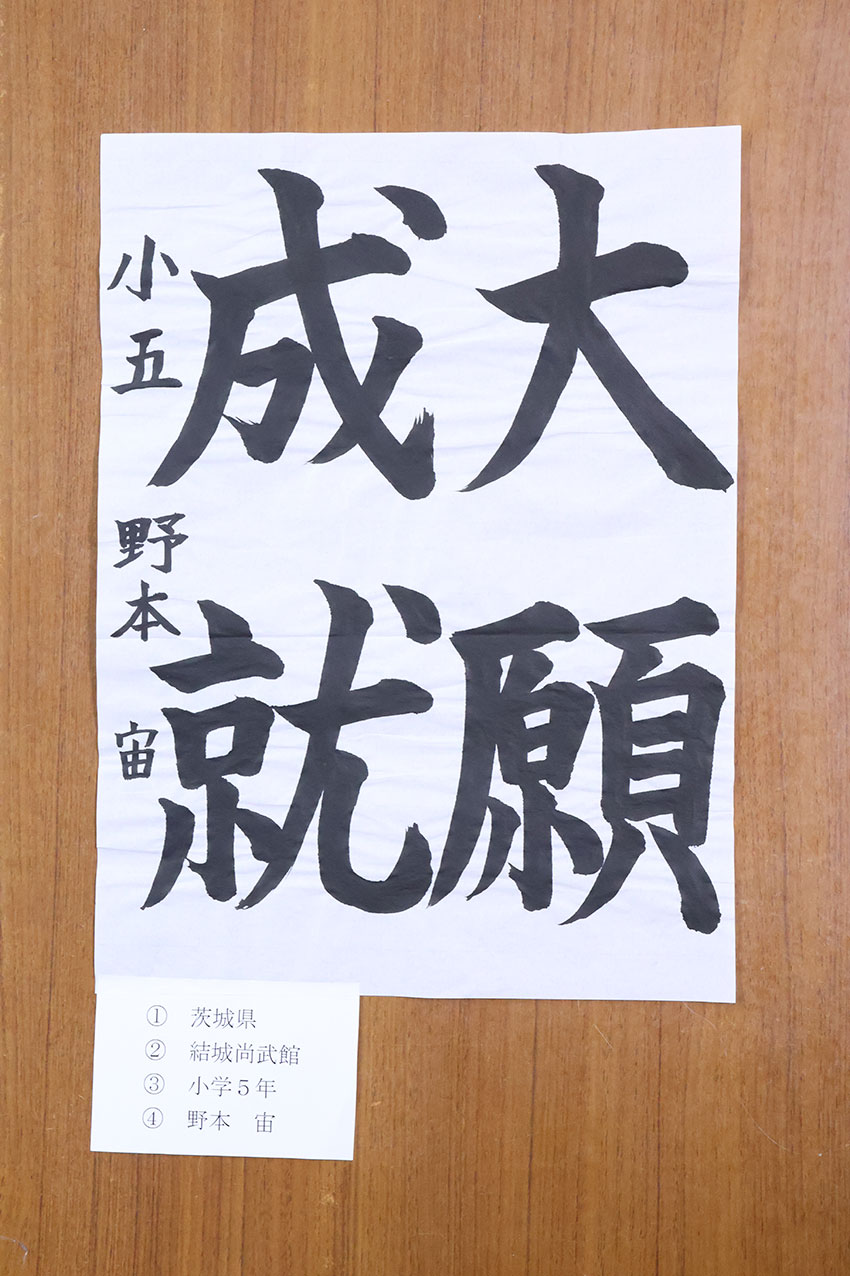 大願
成就
小五 野本 宙
① 茨城県
② 結城尚武館
③ 小学５年
④ 野本 宙